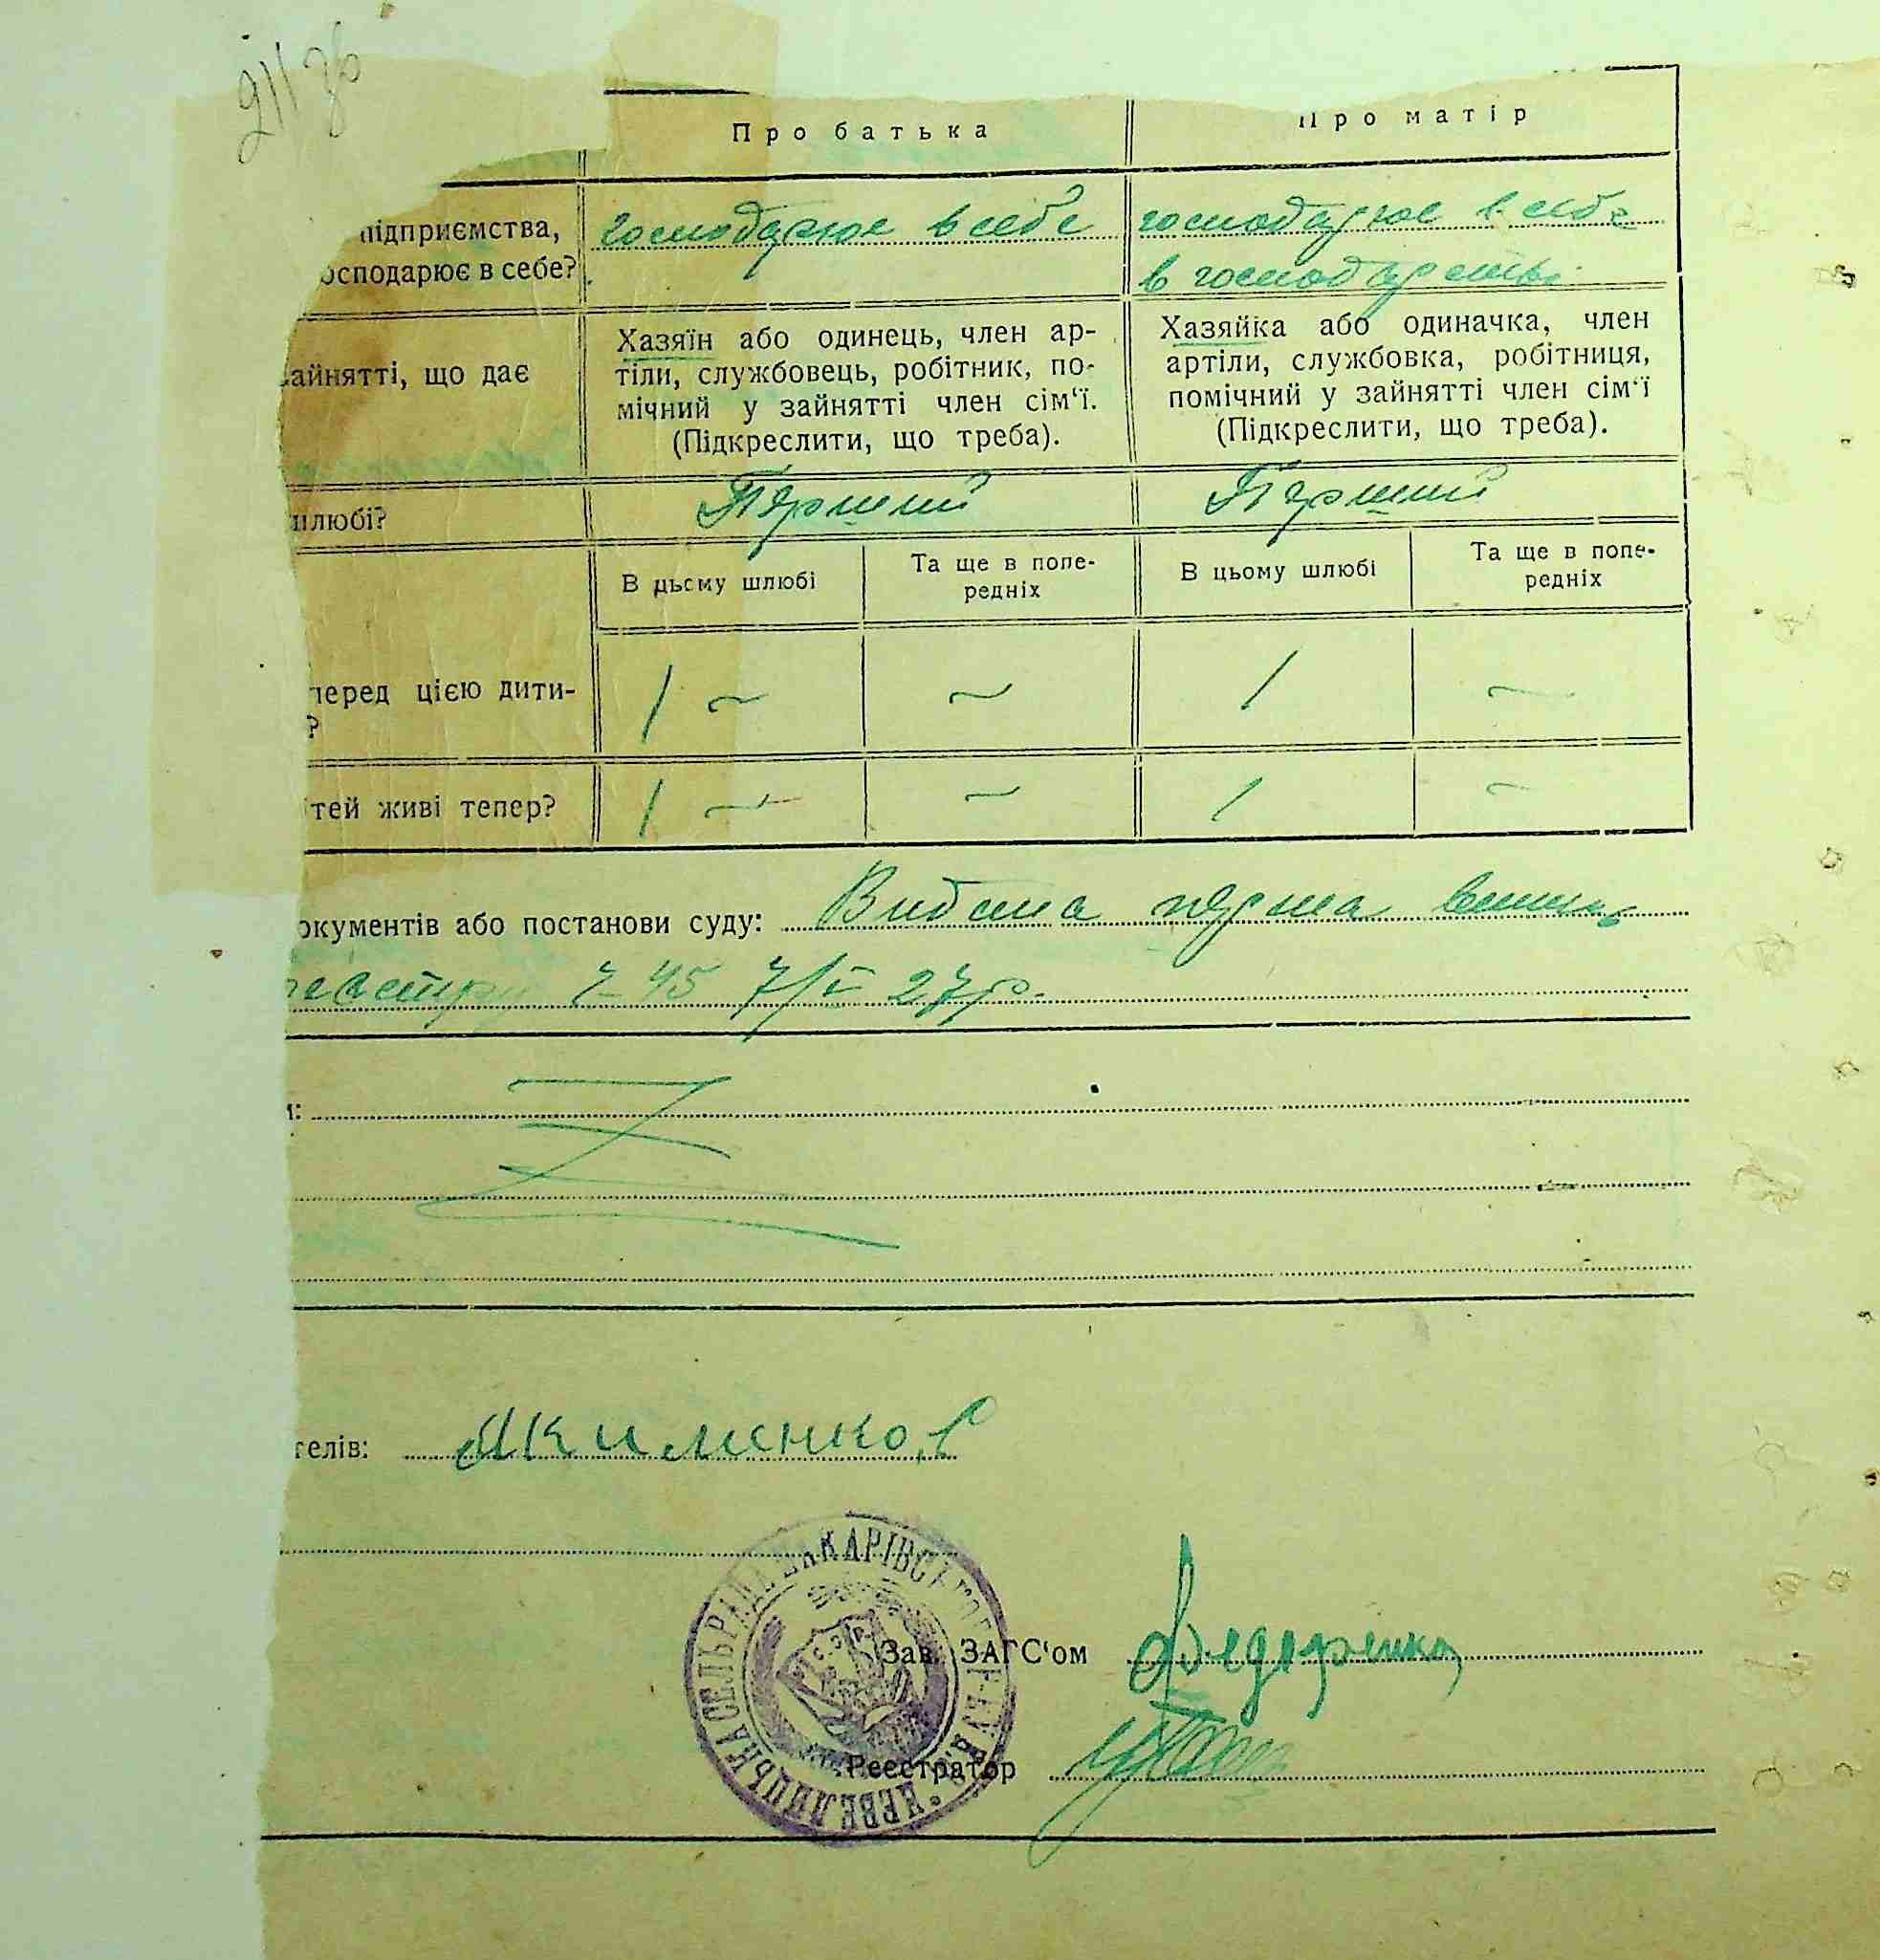 211 зв
Про батька
Про матір
підприємства,
осподарює в себе?
господарює в себе
господарює в себе
в господарстві
зайнятті, що дає
Хазяїн або одинець, член ар-
тіли, службовець, робітник, по-
мічний у зайнятті член сім‘ї.
(Підкреслити, що треба).
Хазяйка або одиначка, член
артіли, службовка, робітниця,
помічний у зайнятті член сім‘ї
(Підкреслити, що треба).
шлюбі?
Перший
Перший
В цьому шлюбі
Та ще в попе-
редніх
В цьому шлюбі
Та ще в попе-
редніх
перед цією дити-
?
1 ~
~
1
~
тей живі тепер?
1 ~
~
1
~
окументів або постанови суду: Видана перша
реєстру 45 7/ 27 р.
и:
телів: Якименко
НЕВЕЛИЦЬКА СЕЛЬРАДА МАКАРІВСЬКОГО Р-НУ
Зав. ЗАГС‘ом Федоренко
Реєстратор